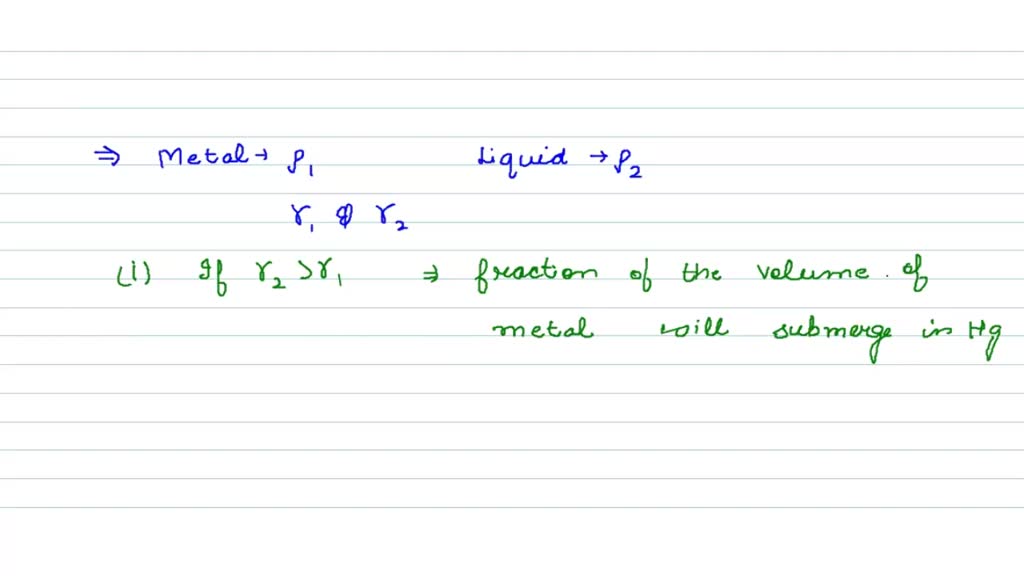 ⇒ Metal → ρ₁ Liquid → ρ₂
γ₁ & γ₂
(i) If γ₂ > γ₁ ⇒ fraction of the volume of
metal will submerge in Hg